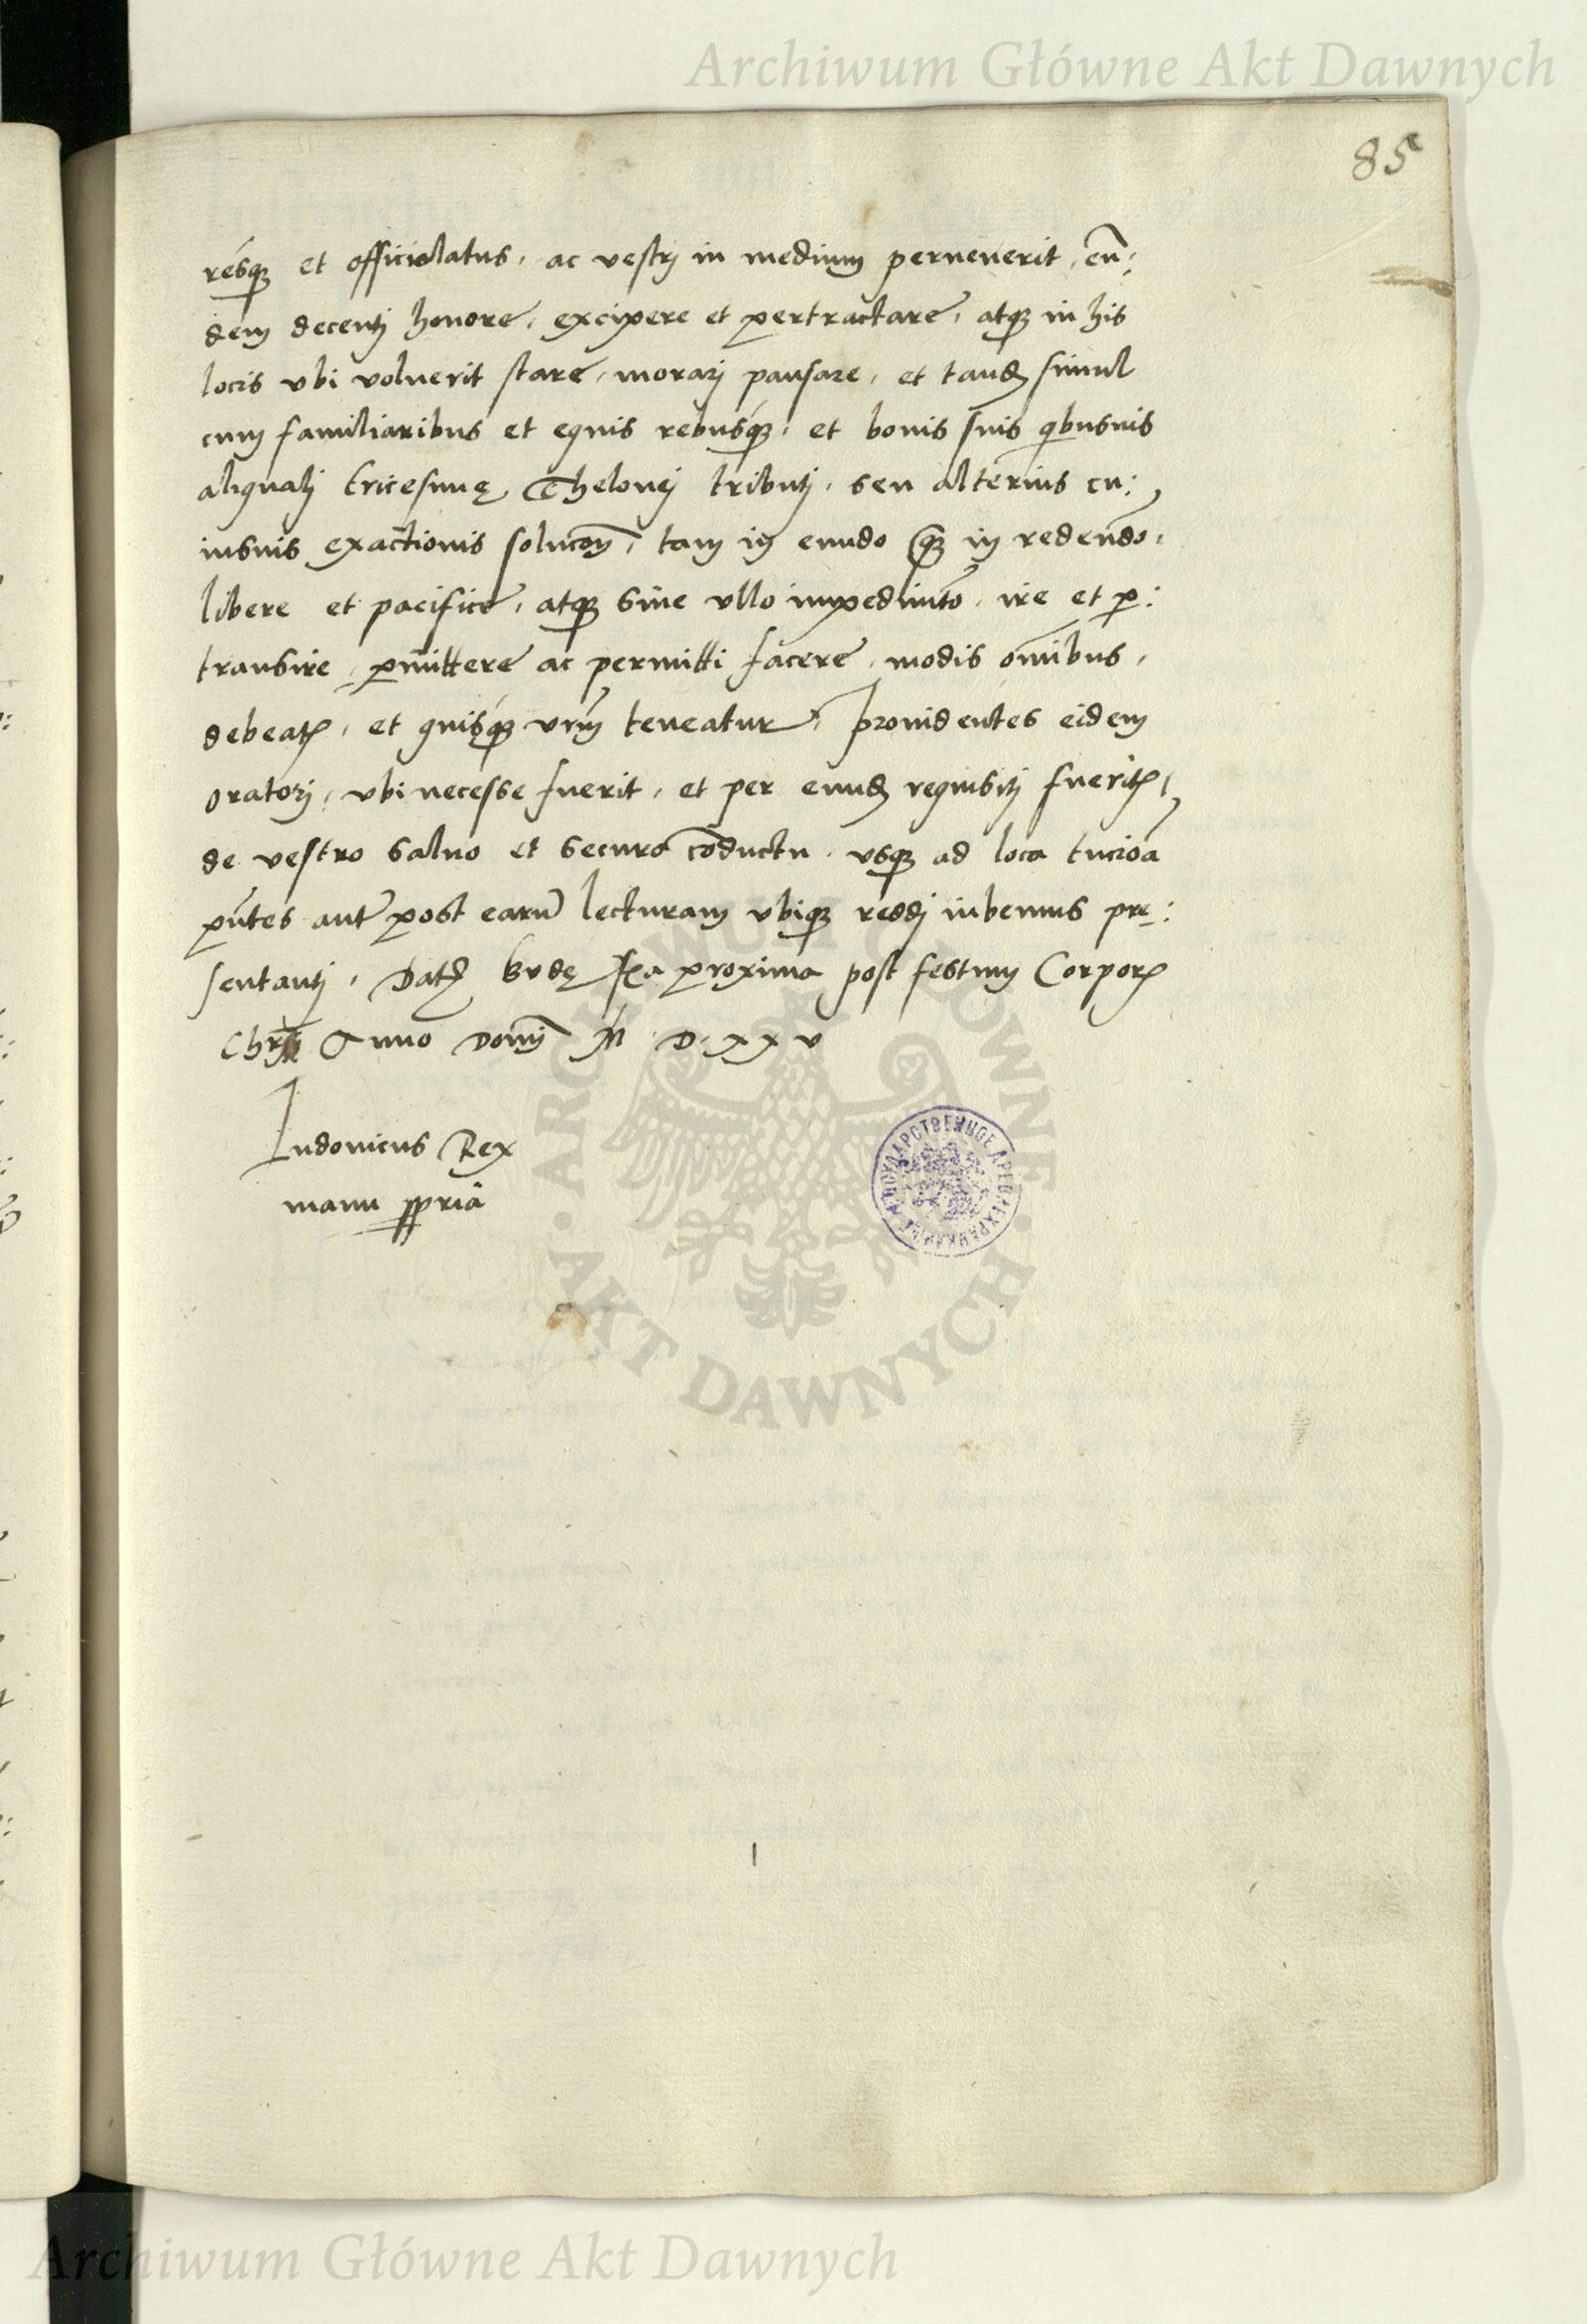 Archiwum Główne Akt Dawnych
85
resq₃ et officiolatus, ac vestrj in medium pervenerit, eū:
dem decentj honore, excipere et pertractare, atq₃ in his
locis vbi voluerit stare, morarj pausare, et tandē simul
cum familiaribus et equis rebusq₃, et bonis suis qibusuis
aliqualj tricesimę Thelonej tributj, seu alterius cu:
iusuis exactionis solucōn, tam in eundo q̄ in redeūdo,
libere et pacifice, atq₃ sine vllo impedimto, ire et p̲:
transire, p̲mittere ac permitti facere, modis oībus,
debeatꝭ, et quisq₃ vrm̄ teneatur, Prouidentes eidem
oratorj, vbi necesse fuerit, et per eundē requisitj fueritꝭ,
de vestro saluo et securo cōductu, vsq₃ ad loca tuciōa
pn̄tes aut̄ post earū lecturam vbiq₃ reddj iubemus prę:
sentantj, Datꝭ Budę proxima post festum Corporꝭ
Chrī Anno Domj M D XX V
Ludouicus Rex
manu ppria
ARCHIWUM GŁÓWNE · AKT DAWNYCH ·
Archiwum Główne Akt Dawnych